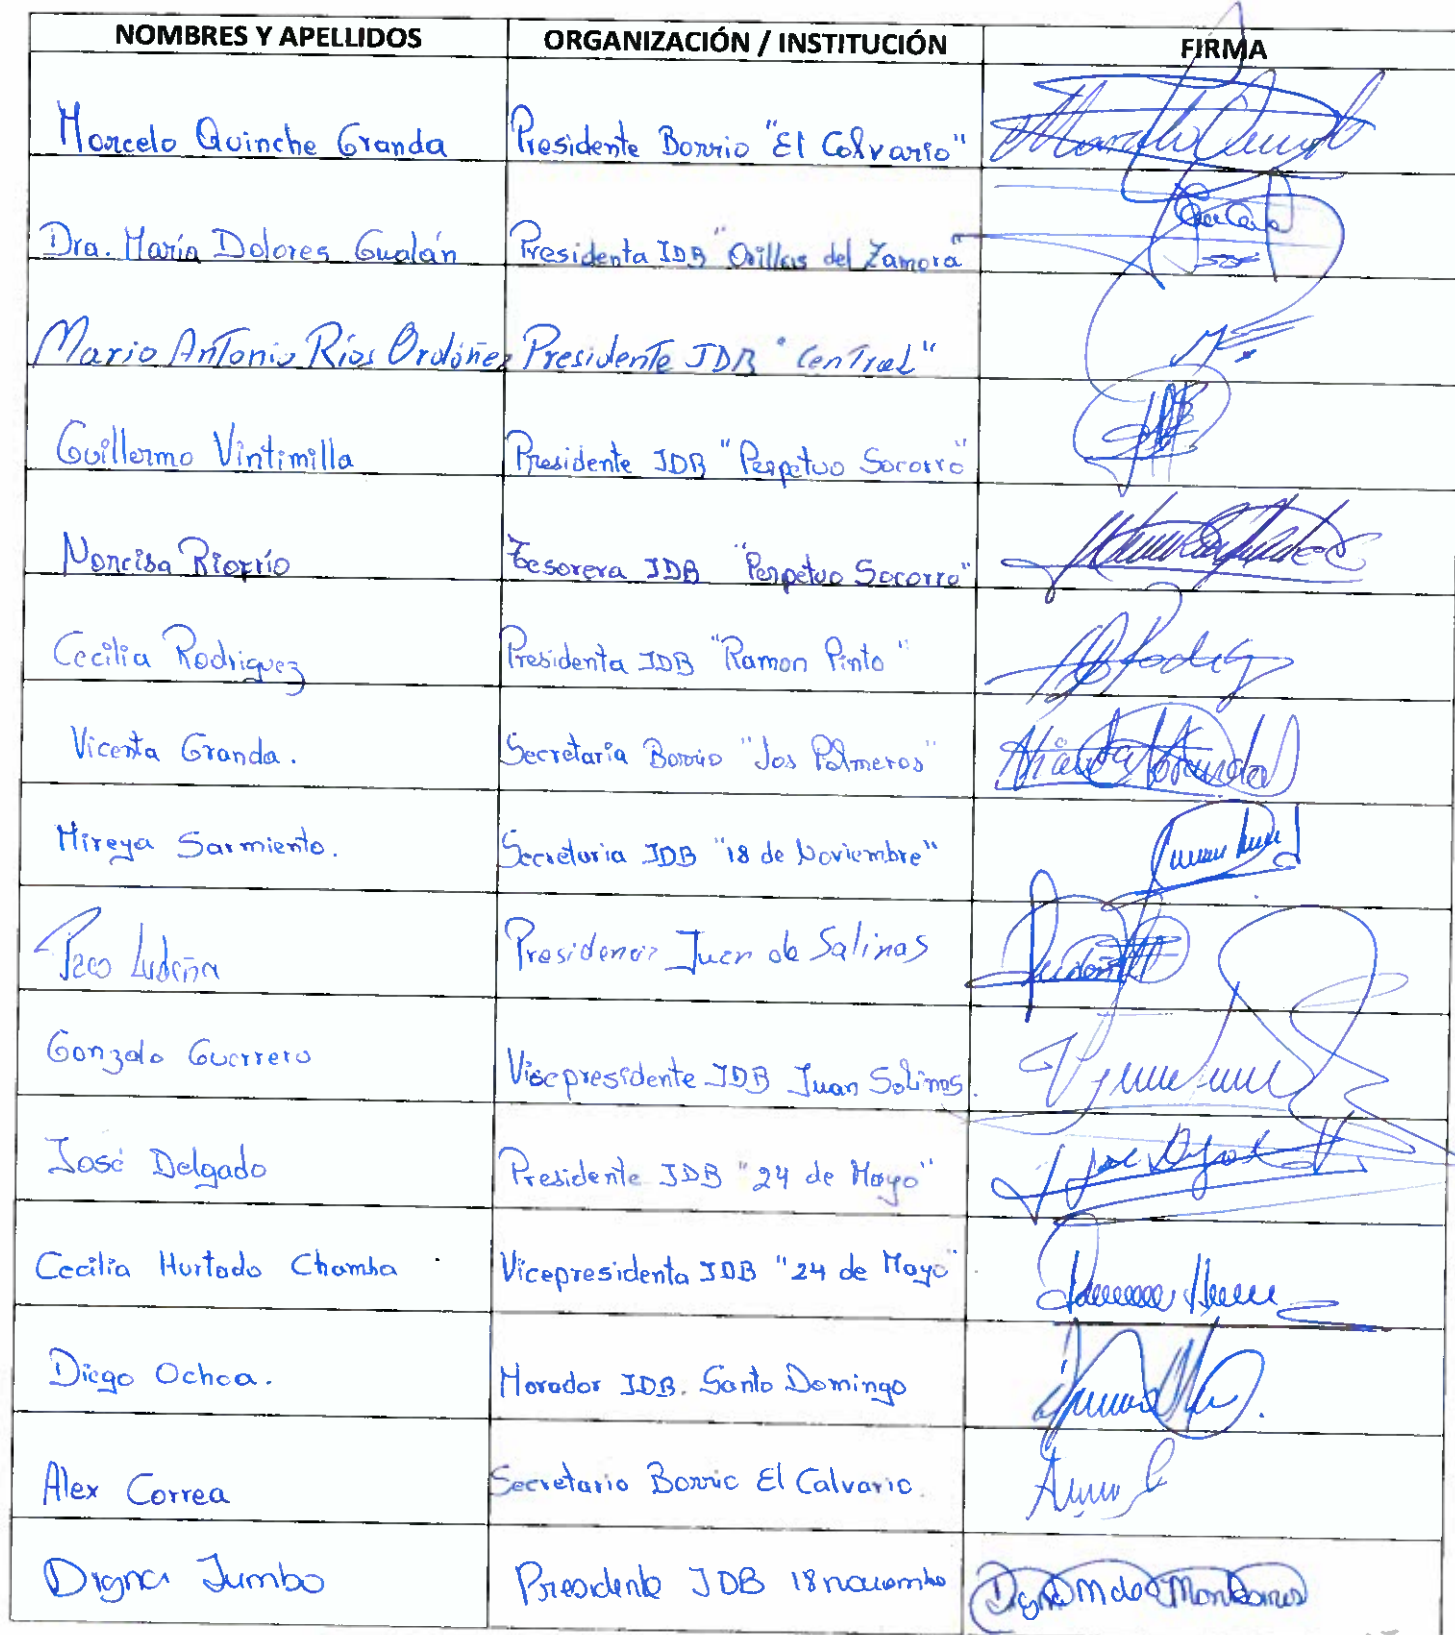 NOMBRES Y APELLIDOS ORGANIZACIÓN / INSTITUCIÓN FIRMA
Marcelo Quinche Granda Presidente Barrio "El Calvario"
Dra. María Dolores Gualán Presidenta JDB "Orillas del Zamora"
Mario Antonio Ríos Ordóñez Presidente JDB "Central"
Guillermo Vintimilla Presidente JDB "Perpetuo Socorro"
Narcisa Riofrío Tesorera JDB "Perpetuo Socorro"
Cecilia Rodriguez Presidenta JDB "Ramon Pinto"
Vicenta Granda. Secretaria Barrio "Las Palmeras"
Mireya Sarmiento. Secretaria JDB "18 de Noviembre"
Paco Ludeña Juan de Salinas
Gonzalo Guerrero Vicepresidente JDB Juan Salinas.
José Delgado Presidente JDB "24 de Mayo"
Cecilia Hurtado Chamba Vicepresidenta JDB "24 de Mayo"
Diego Ochoa. Morador JDB. Santo Domingo
Alex Correa Secretario Barrio El Calvario.
Digna Jumbo JDB 18